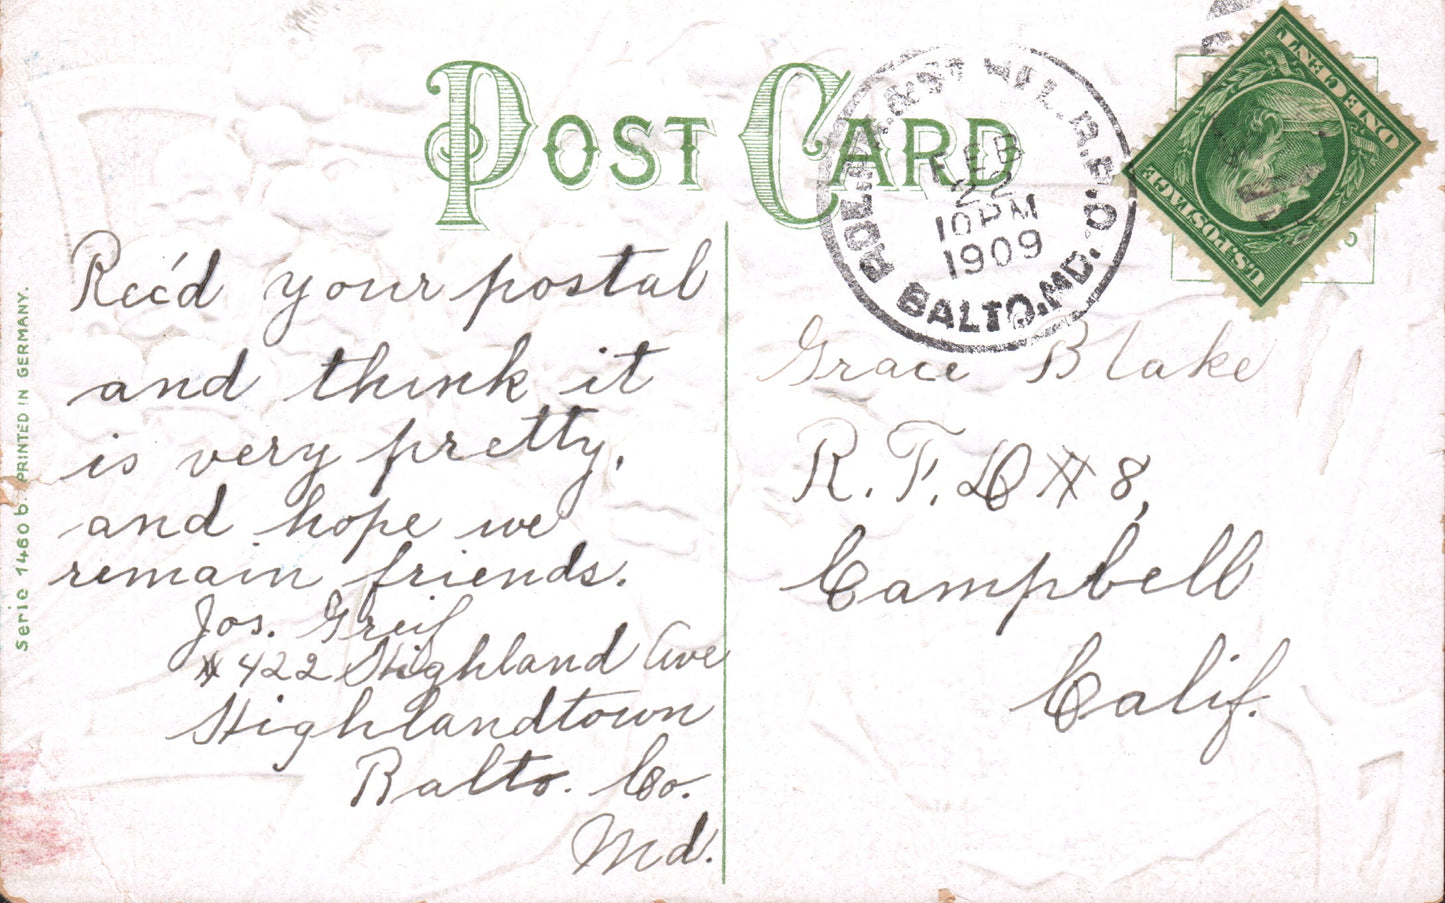 POST CARD
Rec'd your postal
and think it
is very pretty,
and hope we
remain friends.
Jos. Greif
# 422 Highland Ave
Highlandtown
Balto. Co.
Md.
Serie 1460 b. PRINTED IN GERMANY.
FEB
22
10 PM
1909
R.P.O.
BALTO, MD.
U.S. POSTAGE
ONE CENT
Grace Blake
R. F. D # 8,
Campbell
Calif.